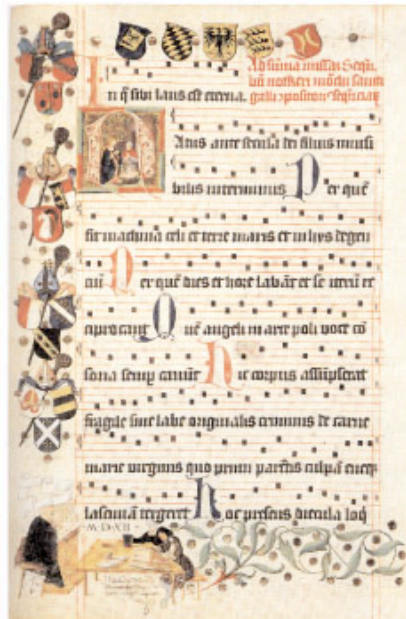 Ad sūma missa Sequē
notkeri mōchi sancti
In q̄ sibi laus est eterna.
galli ꝯpositor
Natus ante secula dei filius inuisi
bilis interminus Per quē
fit machina celi et terre maris et in hys degen
ciū Per quē dies et hore labāt et se iterū re
ciprocant Quē angeli in arce poli voce cō
sona semp canunt Hic corpus assūpserat
fragile sine labe originalis criminis de carne
marie virginis quo primi parētis culpā eueq
lasciuiam tergeret Hoc presens diecula loq
M·D·XII